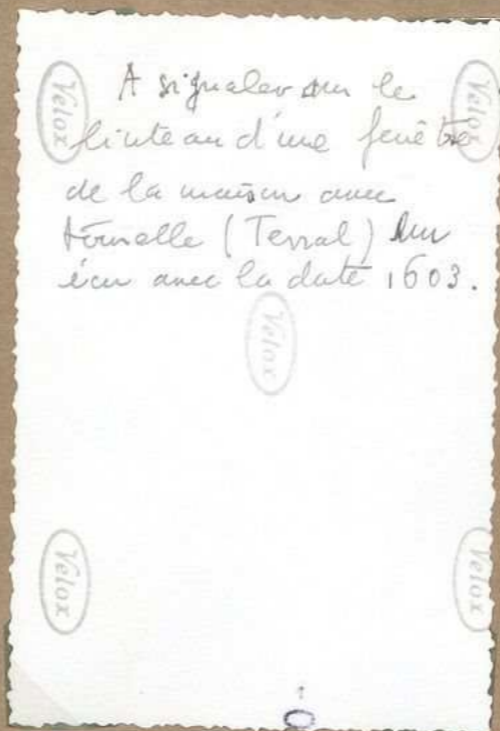 A signaler sur le
linteau d'une fenêtre
de la maison avec
tourelle (Terral) un
écu avec la date 1603.
Velox
Velox
Velox
Velox
Velox